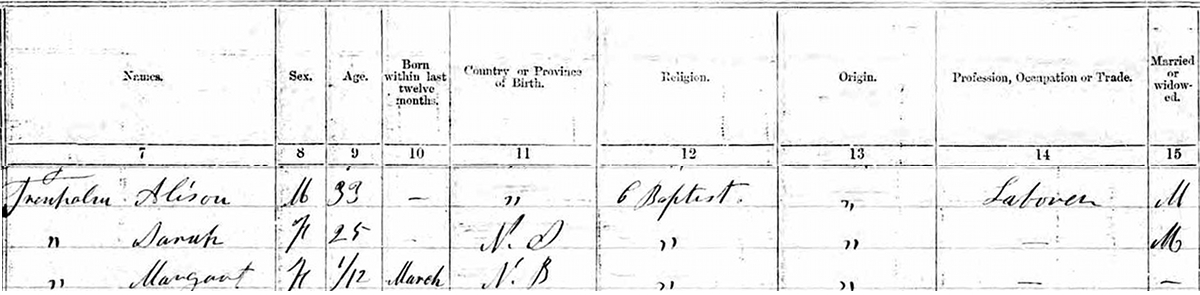 Names. Sex. Age. Born within last twelve months. Country or Province of Birth. Religion. Origin. Profession, Occupation or Trade. Married or widow-ed.
7 8 9 10 11 12 13 14 15
Trenholm Alison M 33 — " C Baptist. " Laborer M
" Sarah F 25 — N. S " " — M
" Margaret F 1/12 March N. B " " — —